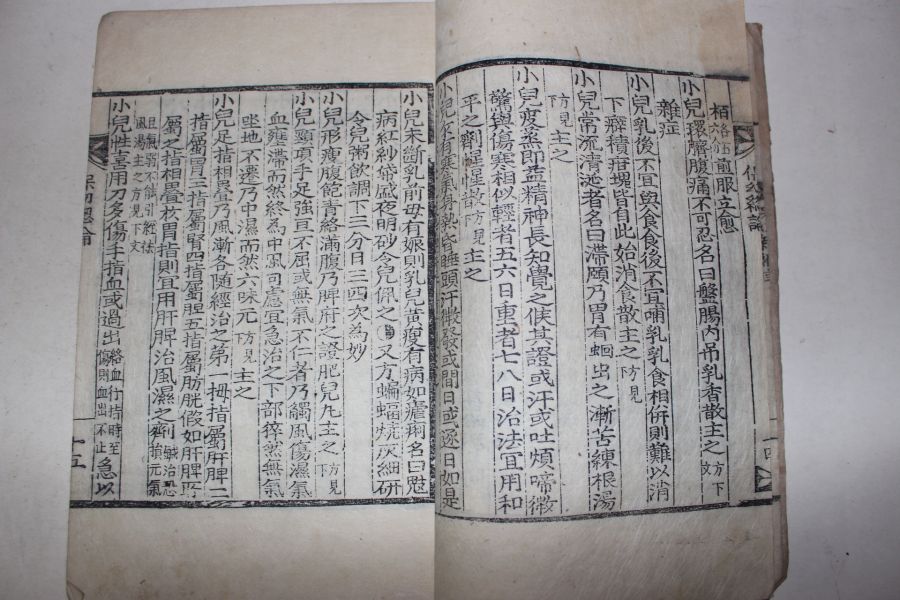 栢 各五六分 煎服立愈
小兒臍腹痛不可忍名曰盤腸内吊乳香散主之 方下文
雜症
小兒乳後不宜與食食後不宜哺乳乳食相併則難以消
下癖積疳塊皆自此始消食散主之 方見下
小兒常流清涎者名曰滯頤乃胃有蛔虫之漸苦練根湯
主之 方見下
小兒變蒸即益精神長知覺之候其證或汗或吐煩啼微
驚與傷寒相似輕者五六日重者七八日治法宜用和
平之劑惺惺散 方見下 主之
小兒 有寒氣 熱昏睡頭汗微發或間日或逐日如是
小兒未斷乳前母有娠則乳兒黃瘦有病如瘧痢名曰鬾
病紅紗帒盛夜明砂令兒佩之 又方蝙蝠燒灰細研
令兒粥飮調下二分日三四次爲妙
小兒形瘦腹飽青絡滿腹乃脾疳之證肥兒丸主之 方見下
小兒頸項手足強亘不屈或無氣不仁者乃觸風傷濕氣
血壅滯而然終爲中風可慮宜急治之下部猝然無氣
坐地不還乃中濕而然六味元 方見下 主之
小兒足指相疊乃風漸各隨經治之第一拇指屬肝脾二
指屬胃三指屬腎四指屬膽五指屬肪胱假如肝脾所
屬之指相疊枚胃指則宜用肝脾治風濕之劑 鹹治恐損元氣
且氣弱不能引經祛風湯主之方見下文
小兒性喜用刀多傷手指血或過出 絡血行指時至傷則血出不止 急以
保幼總論
十五
十四